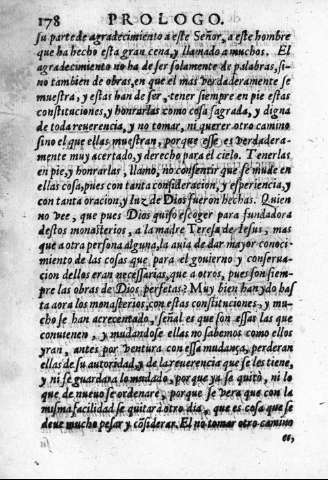 178 PROLOGO.
su parte de agradecimiento a este Señor, a este hombre
que ha hecho esta gran cena, y llamado a muchos. El
agradecimiento no ha de ser solamente de palabras, si-
no tambien de obras, en que el mas verdaderamente se
muestra, y estas han de ser, tener siempre en pie estas
constituciones, y honrarlas como cosa sagrada, y digna
de toda reuerencia, y no tomar, ni querer otro camino
sino el que ellas muestran, porque esse es verdadera-
mente muy acertado, y derecho para el cielo. Tenerlas
en pie, y honrarlas, llamo, no consentir que se mude en
ellas cosa, pues con tanta consideracion, y esperiencia, y
con tanta oracion, y luz de Dios fueron hechas. Quien
no vee, que pues Dios quiso escoger para fundadora
destos monasterios, a la madre Teresa de Iesus, mas
que a otra persona alguna, la auia de dar mayor conoci-
miento de las cosas que para el gouierno y conserua-
cion dellos eran necessarias, que a otros, pues son siem-
pre las obras de Dios perfetas? Muy bien han ydo has
ta aora los monasterios, con estas constituciones, y mu-
cho se han acrecentado, señal es que son essas las que
conuienen, y mudandose ellas no sabemos como ellos
yran, antes por ventura con essa mudança, perderan
ellas de su autoridad, y de la reuerencia que se les tiene,
y ni se guardara lo mudado, porque ya se quitò, ni lo
que de nueuo se ordenare, porque se vera que con la
misma facilidad se quitara otro dia, que es cosa que se
deue mucho pesar y cõsiderar. El no tomar otro camino
es,